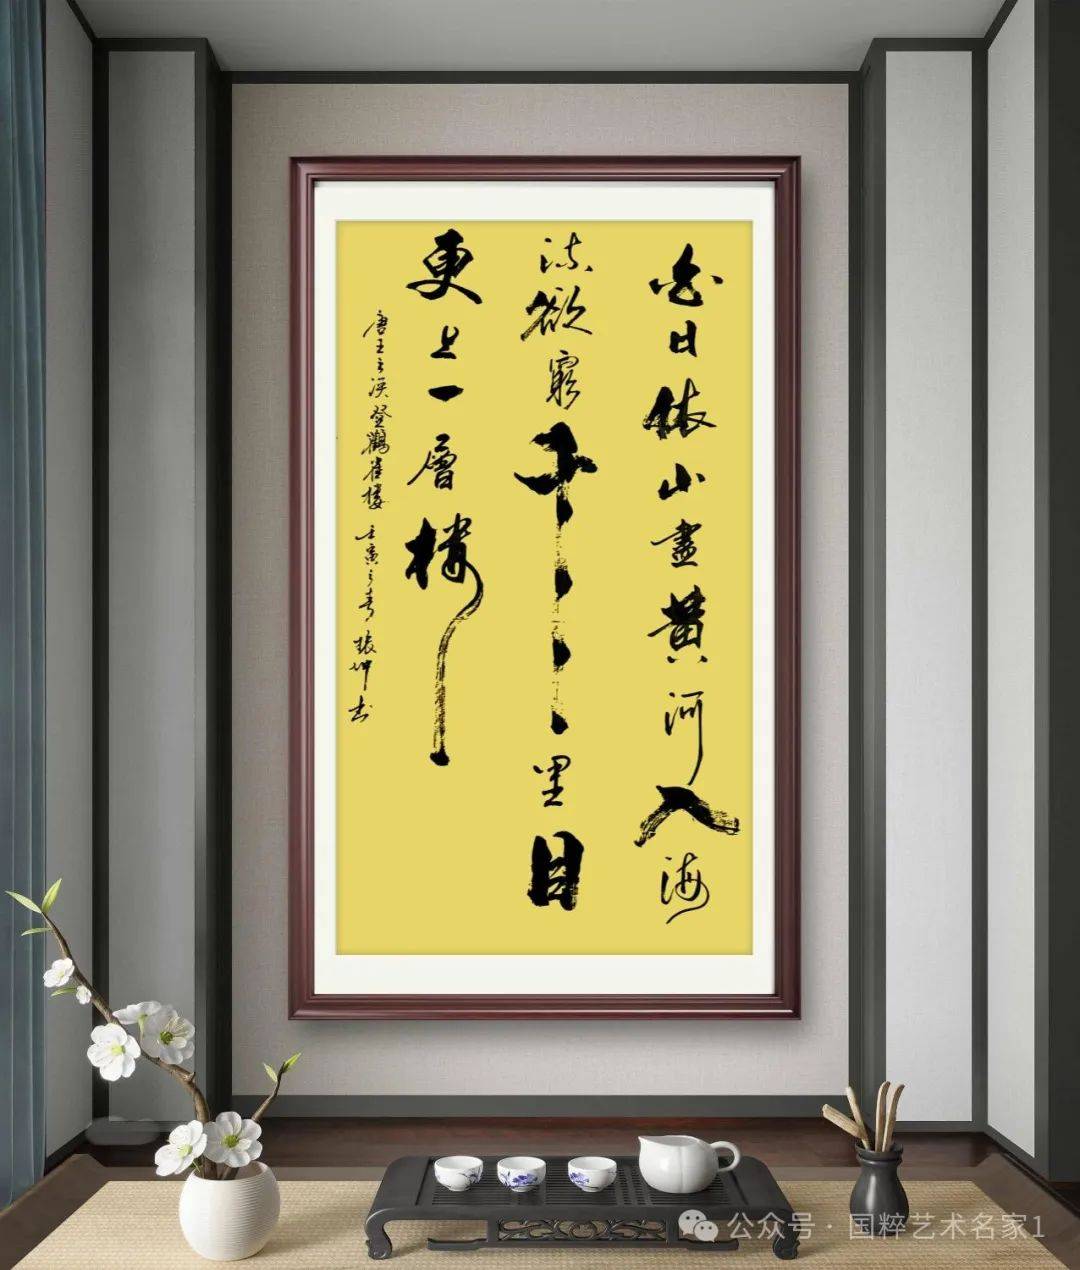 白日依山盡黄河入海
流欲窮千里目
更上一層樓
唐王之涣登鸛雀樓 壬寅之春 振坤书
公众号 · 国粹艺术名家1